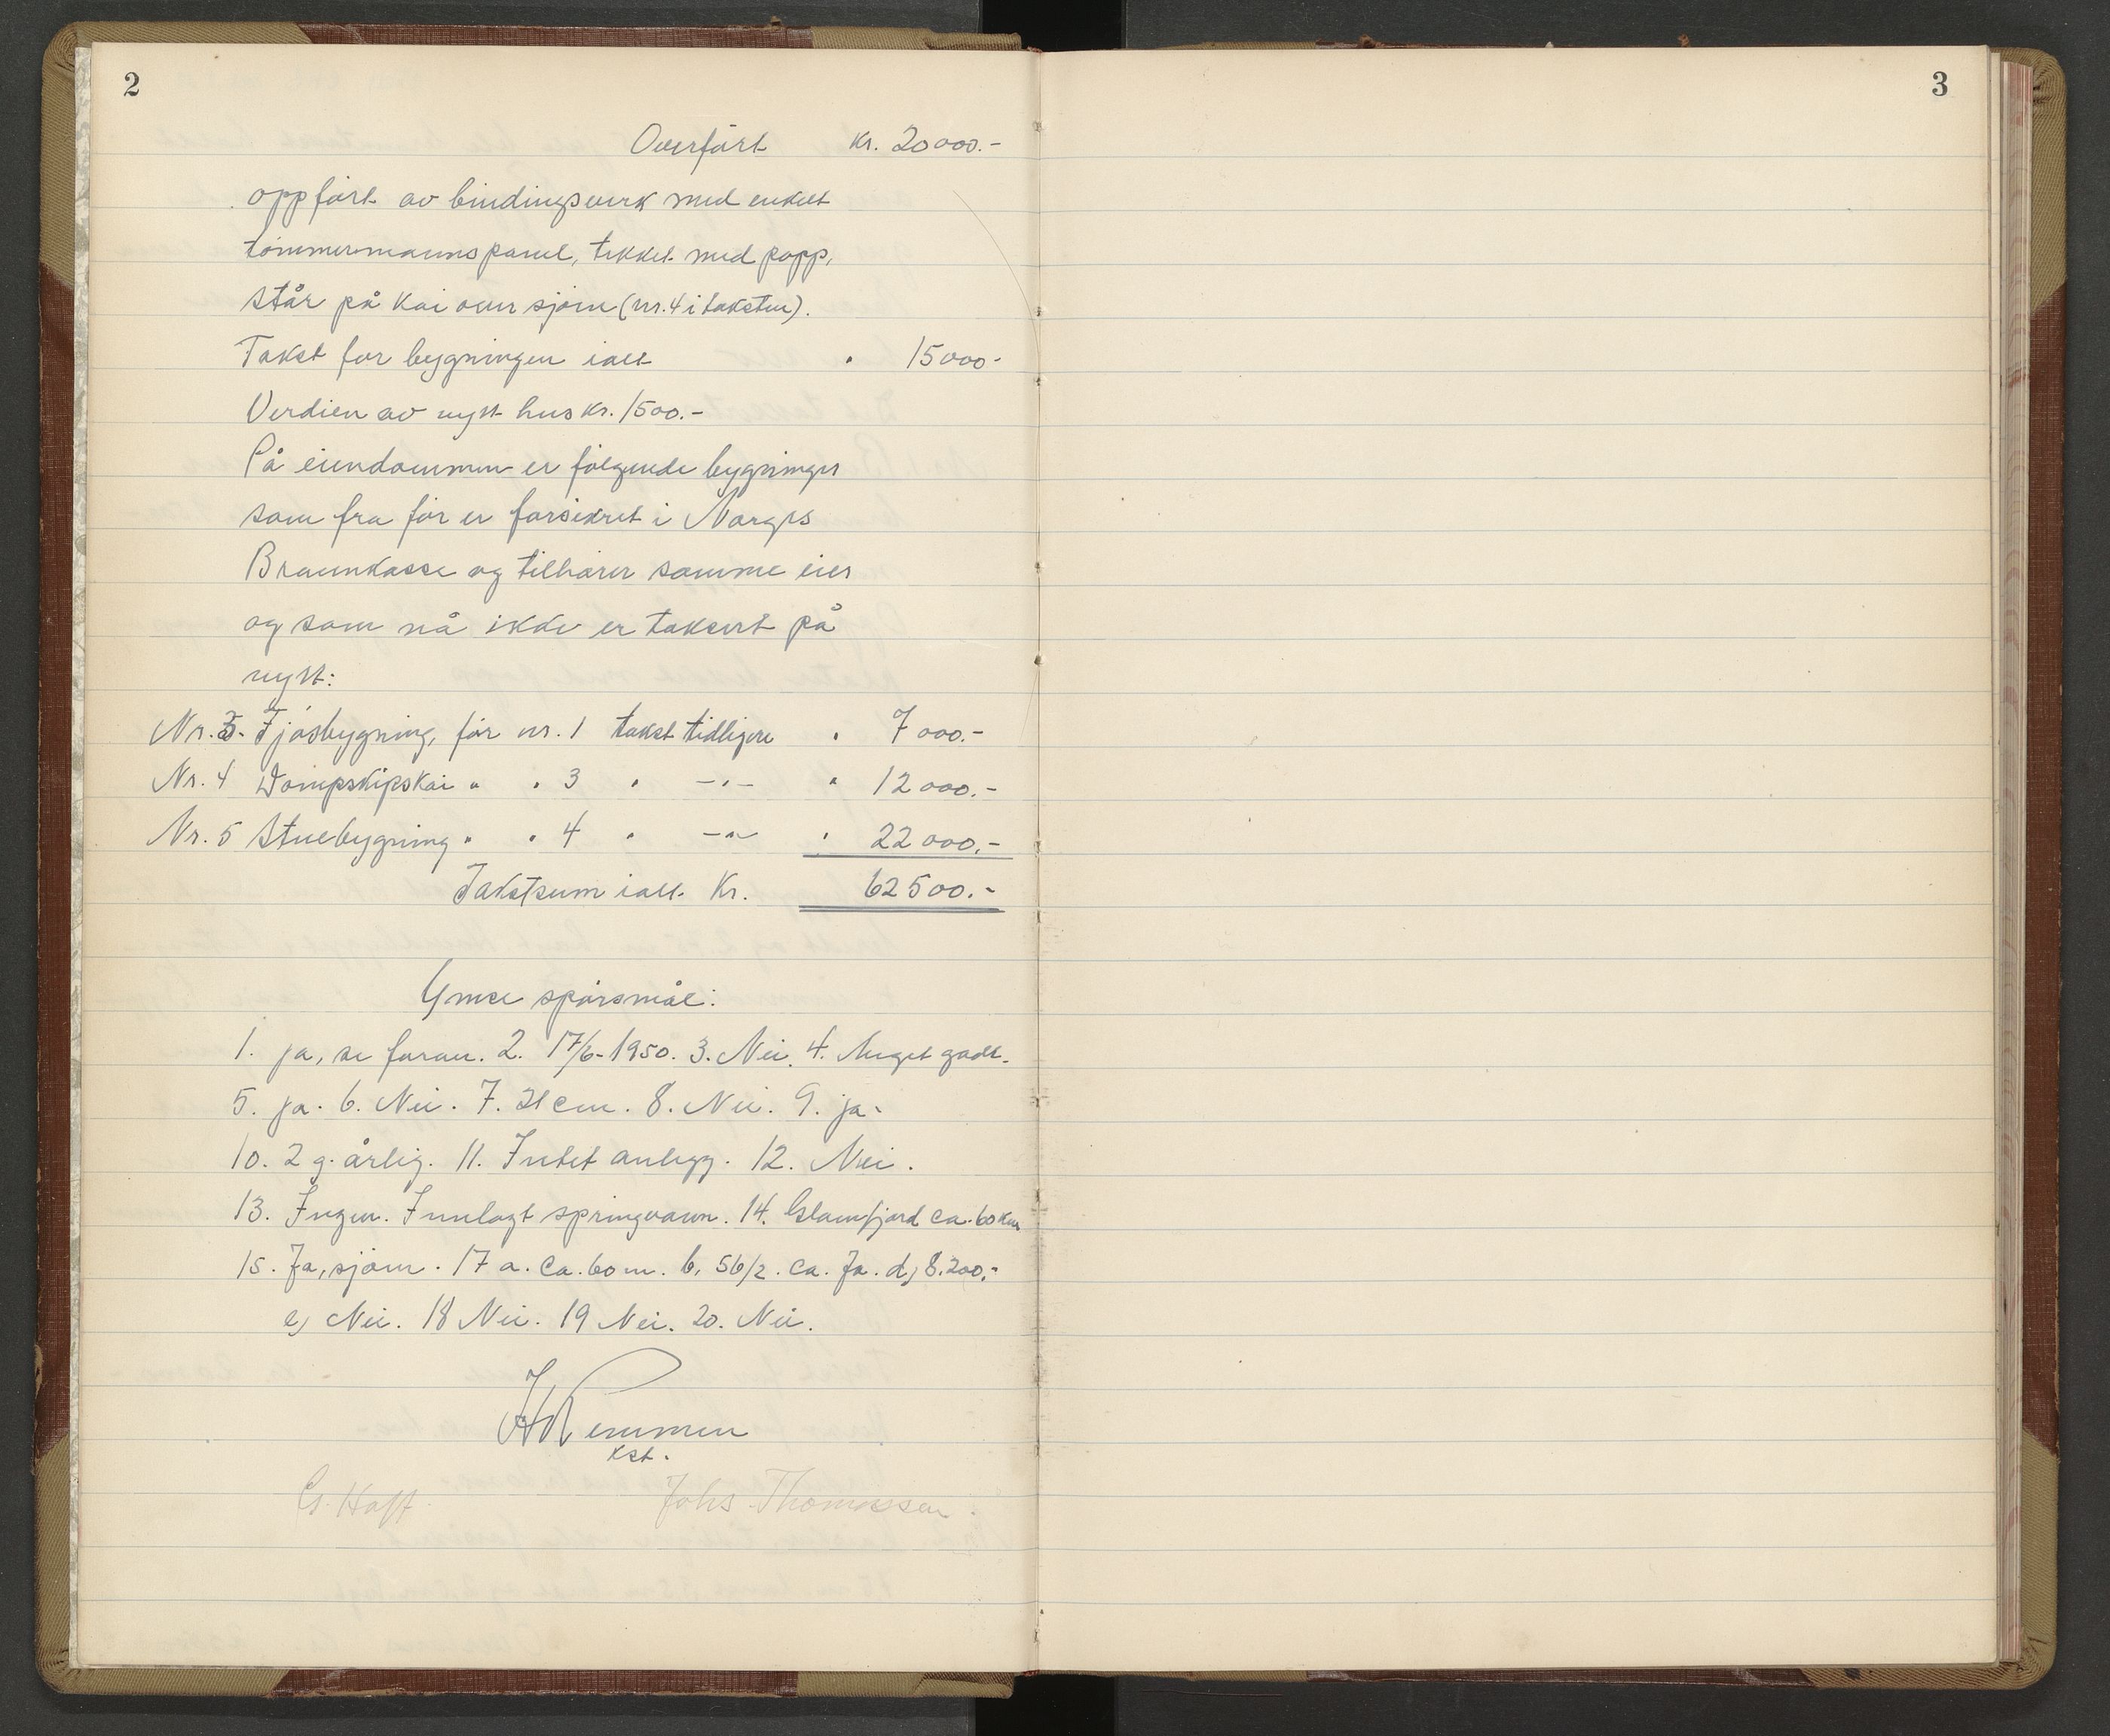 2
Overført kr. 20000.-
oppført av bindingsverk med enkelt
tømmermannspanel, tekket med papp,
står på kai over sjøen (nr. 4 i taksten).
Takst for bygningen ialt " 15000-
Verdien av nytt hus kr. 1500.-
På eiendommen er følgende bygninger
som fra før er forsikret i Norges
Brannkasse og tilhører samme eier
og som nå ikke er taksert på
nytt:
Nr. 3. Fjøsbygning, før nr. 1 takst tidligere " 7000.-
Nr. 4 Dampskipskai " " 3 " -"- " 12000.-
Nr. 5 Stuebygning " " 4 " -"- " 22000.-
Takstsum ialt Kr. 62500.-
Ymse spørsmål:
1. ja, se foran. 2. 17/6-1950. 3. Nei. 4. Meget godt.
5. ja. 6. Nei. 7. 21 cm. 8. Nei. 9. ja.
10. 2 g. årlig. 11. Intet anlegg. 12. Nei.
13. Ingen. Innlagt springvann. 14. Glomfjord ca. 60 km
15. Ja, sjøen. 17 a. Ca. 60 m. b, 56/2. ca. Ja. d, 8.200.-
e, Nei. 18 Nei. 19 Nei. 20. Nei.
kst.
Johs Thomassen.
3